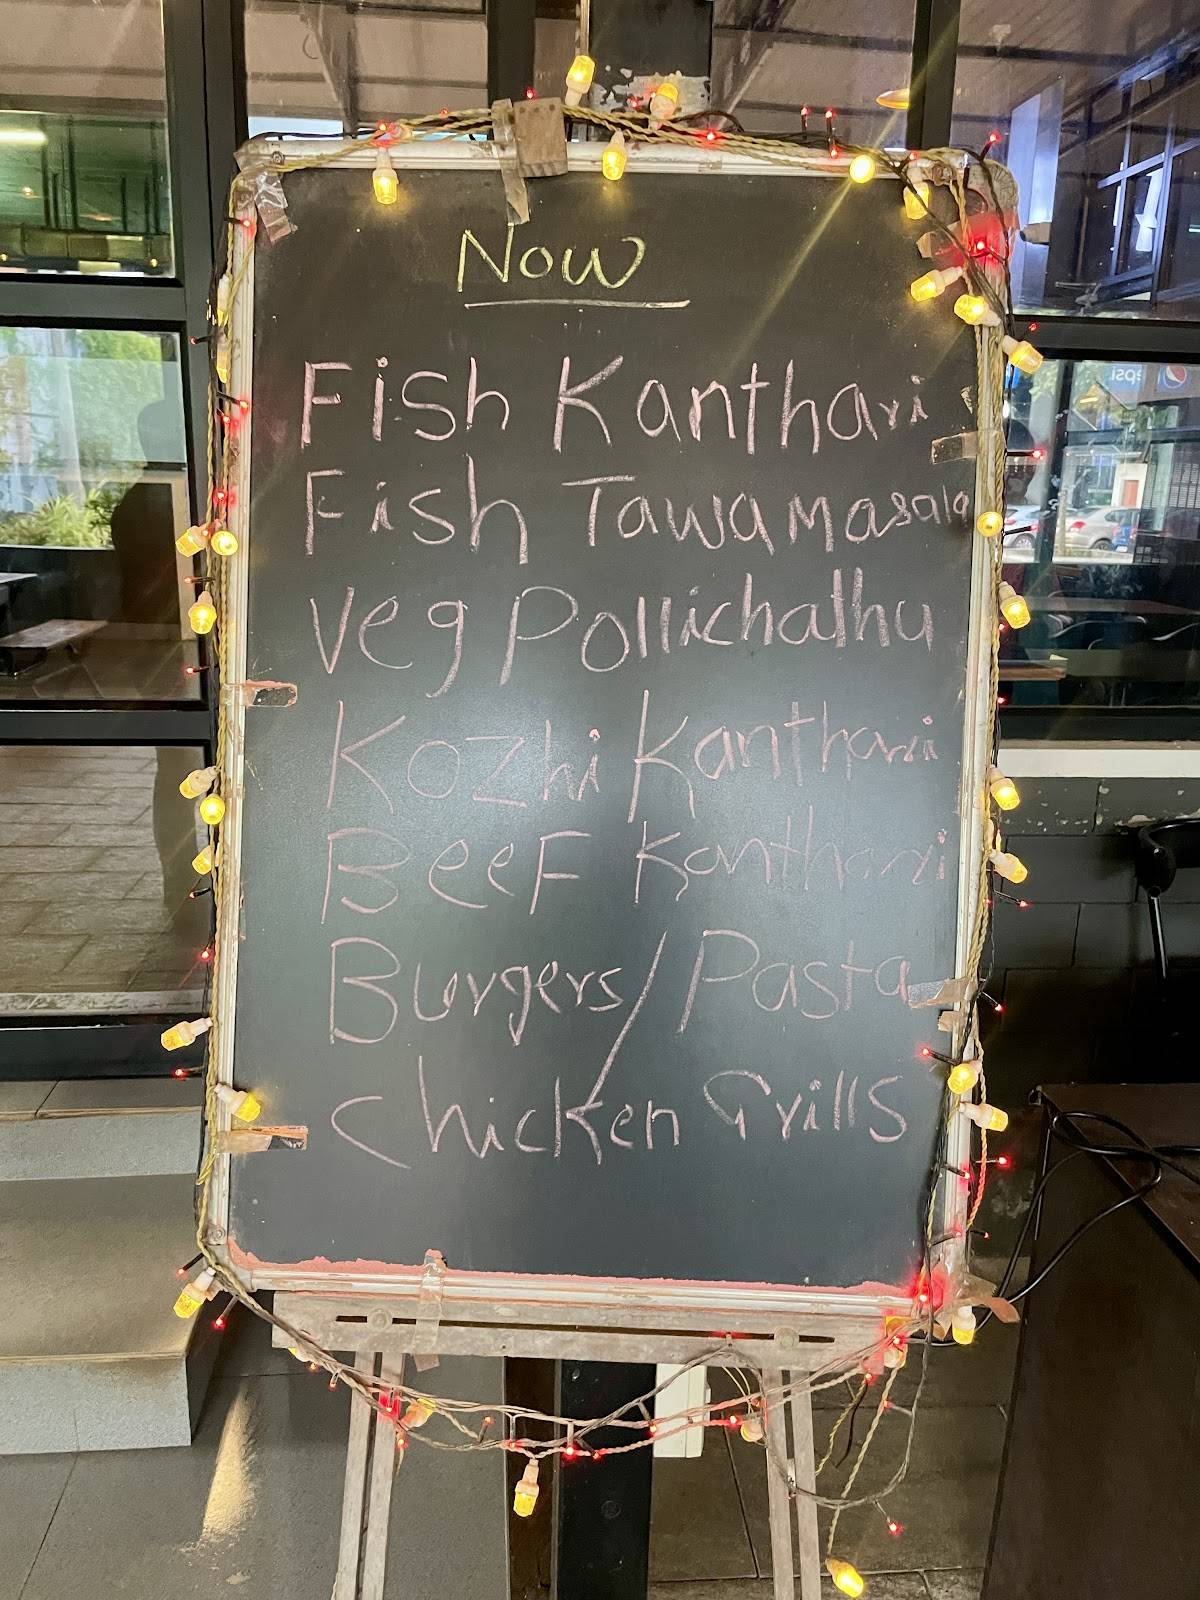 Now
Fish Kanthari
Fish Tawa Masala
Veg Pollichathu
Kozhi Kanthari
Beef Kanthari
Burgers/Pasta
Chicken Grills
pepsi